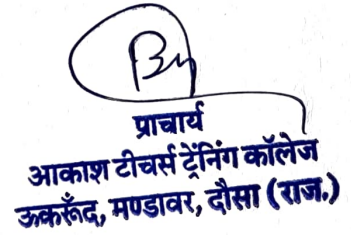 प्राचार्य
आकाश टीचर्स ट्रेंनिंग कॉलेज
ऊकरूँद, मण्डावर, दौसा (राज.)